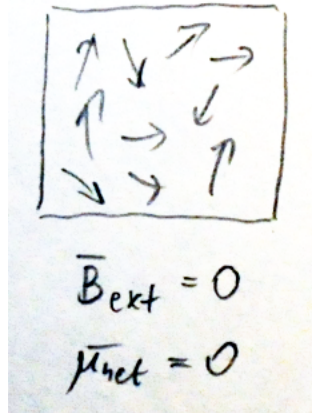 B̅ₑₓₜ = 0
μ̅ₙₑₜ = 0